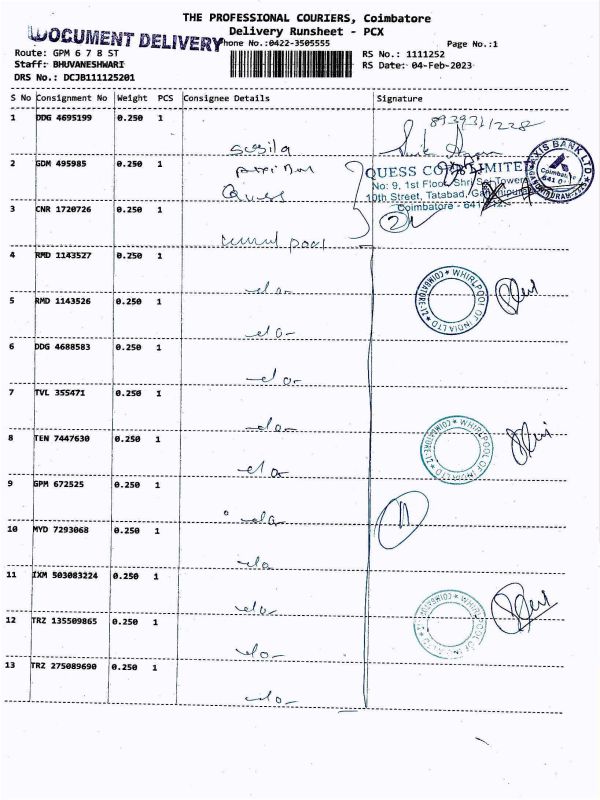 THE PROFESSIONAL COURIERS, Coimbatore
Delivery Runsheet - PCX
DOCUMENT DELIVERY
Phone No.:0422-3505555
Page No.:1
Route: GPM 6 7 8 ST
RS No.: 1111252
Staff: BHUVANESHWARI
RS Date: 04-Feb-2023
DRS No.: DCJB111125201
S No Consignment No Weight PCS Consignee Details Signature
1 DDG 4695199 0.250 1
8939311228
Susila
2 GDM 495985 0.250 1
Quess
QUESS CORP LIMITED
No: 9, 1st Floor, Shri Sai Towers
10th Street, Tatabad, Gandhipuram
Coimbatore - 641 012.
AXIS BANK LTD
Coimbatore
3 CNR 1720726 0.250 1
4 RMD 1143527 0.250 1
do-
WHIRLPOOL OF INDIA LTD ★ COIMBATORE-12 ★
5 RMD 1143526 0.250 1
do-
6 DDG 4688583 0.250 1
do-
7 TVL 355471 0.250 1
do-
8 TEN 7447630 0.250 1
do-
WHIRLPOOL OF INDIA LTD ★ COIMBATORE-12 ★
9 GPM 672525 0.250 1
do-
11
10 MYD 7293068 0.250 1
do
11 IXM 503083224 0.250 1
do-
12 TRZ 135509865 0.250 1
do-
WHIRLPOOL OF INDIA LTD ★ COIMBATORE-12 ★
13 TRZ 275089690 0.250 1
do-